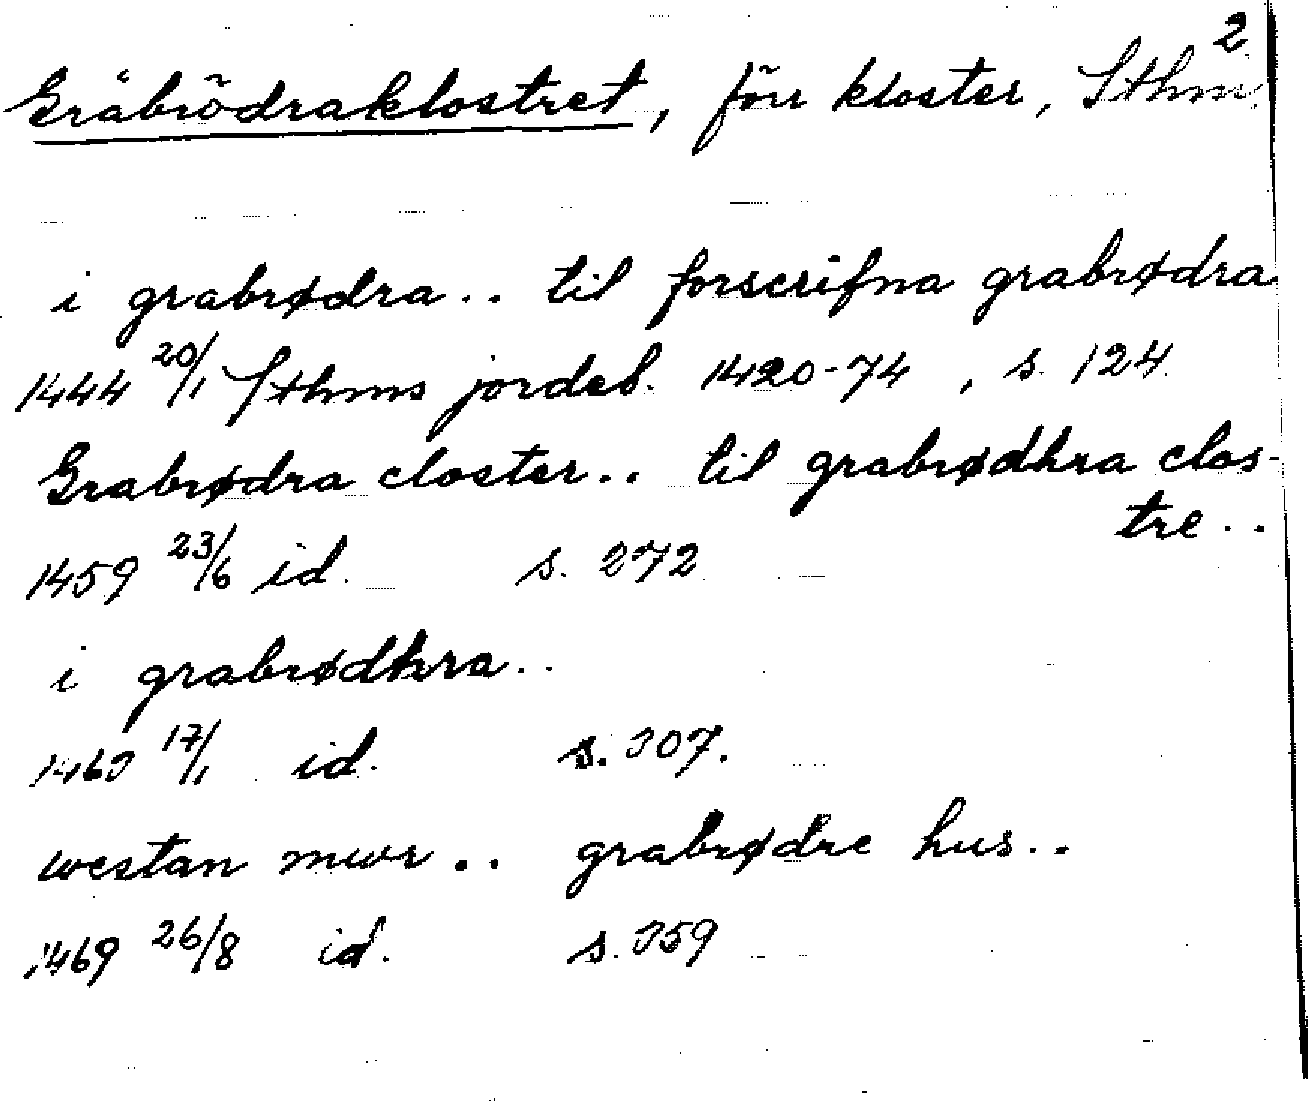 2
Gråbrödraklostret, förr kloster, Sthm.
i grabrødra.. til forscrifna grabrødra
1444 20/1 Sthms jordeb. 1420-74, s. 124.
Grabrødra closter.. til grabrødhra clos-
tre..
1459 23/6 id. s. 272
i grabrødhra..
1463 17/1 id. s. 307.
westan mwr.. grabrødre hus..
1469 26/8 id. s. 359